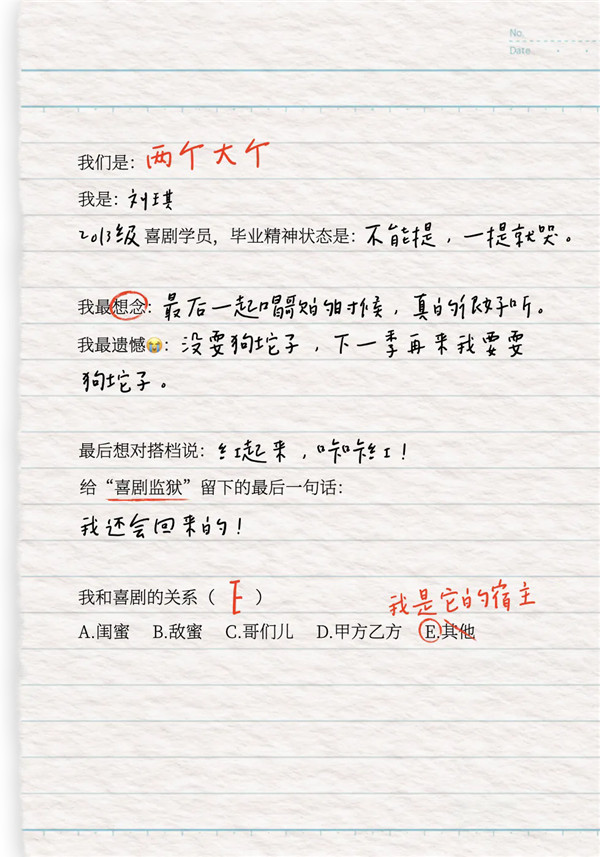 No.
Date
我们是：两个大个
我是：刘琪
2013级喜剧学员，毕业精神状态是：不能提，一提就哭。
我最想念：最后一起唱歌的时候，真的很好听。
我最遗憾😭：没耍狗坨子，下一季再来我要耍
狗坨子。
最后想对搭档说：红起来，咔咔红！
给“喜剧监狱”留下的最后一句话：
我还会回来的！
我和喜剧的关系（ E ）
我是它的宿主
A.闺蜜 B.敌蜜 C.哥们儿 D.甲方乙方 E.其他